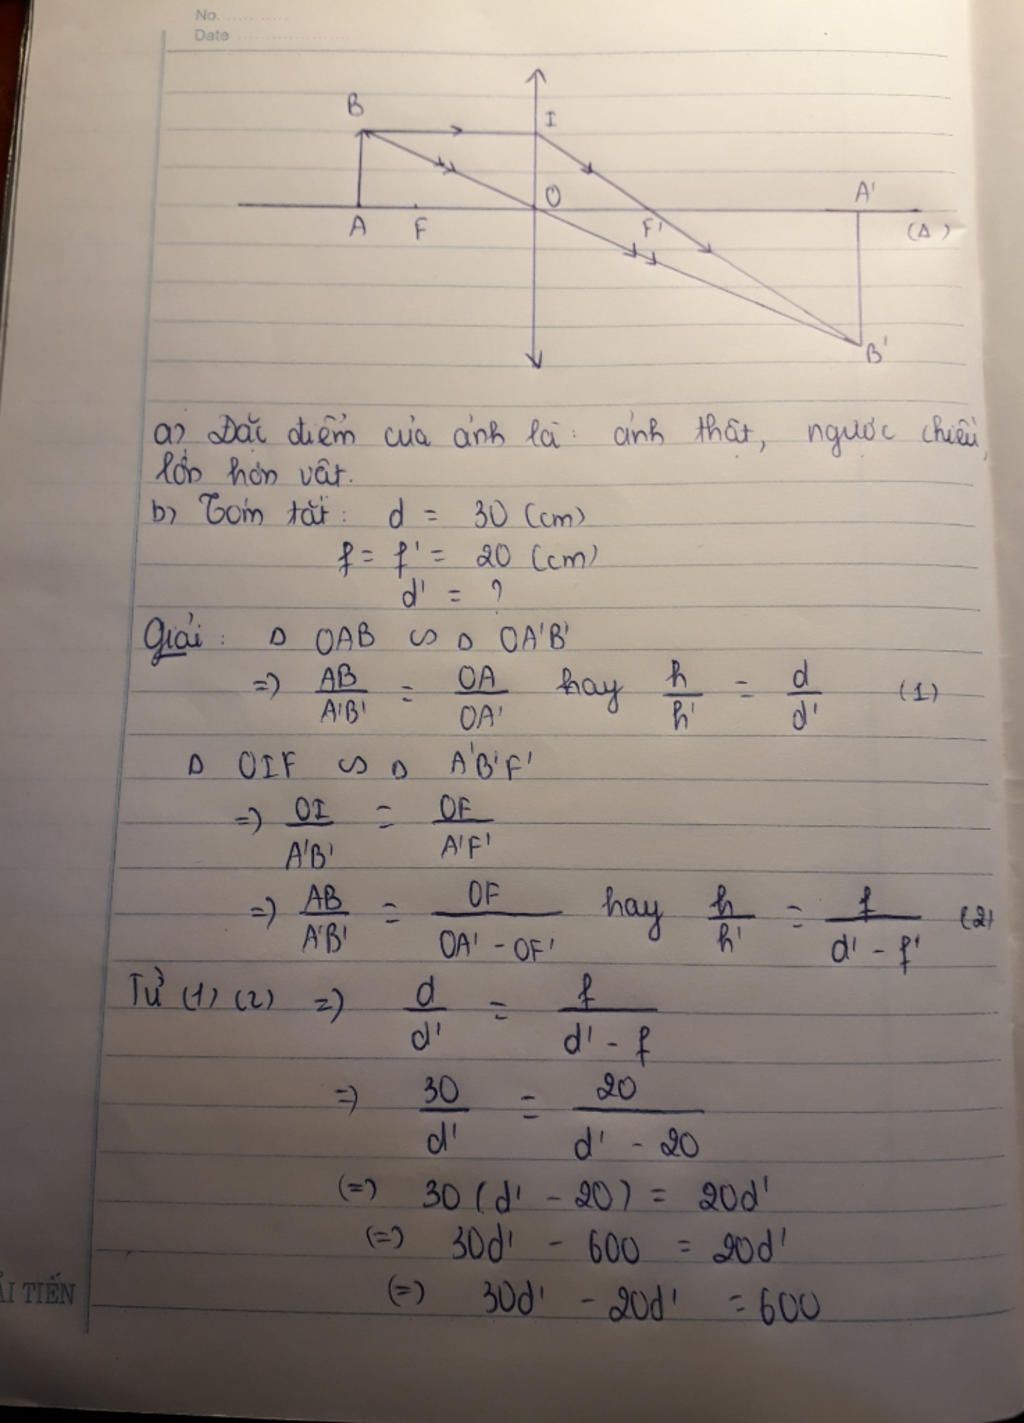 No.
Date
B
I
O
A'
A
F
F'
(Δ)
B'
a) Đặc điểm của ảnh là: ảnh thật, ngược chiều,
lớn hơn vật.
b) Tóm tắt: d = 30 (cm)
f = f' = 20 (cm)
d' = ?
Giải: Δ OAB ∽ Δ OA'B'
=> AB/A'B' = OA/OA' hay h/h' = d/d' (1)
Δ OIF ∽ Δ A'B'F'
=> OI/A'B' = OF/A'F'
=> AB/A'B' = OF/OA' - OF' hay h/h' = f/d' - f' (2)
Từ (1) (2) => d/d' = f/d' - f
=> 30/d' = 20/d' - 20
(=) 30(d' - 20) = 20d'
(=) 30d' - 600 = 20d'
(=) 30d' - 20d' = 600
ẢI TIẾN